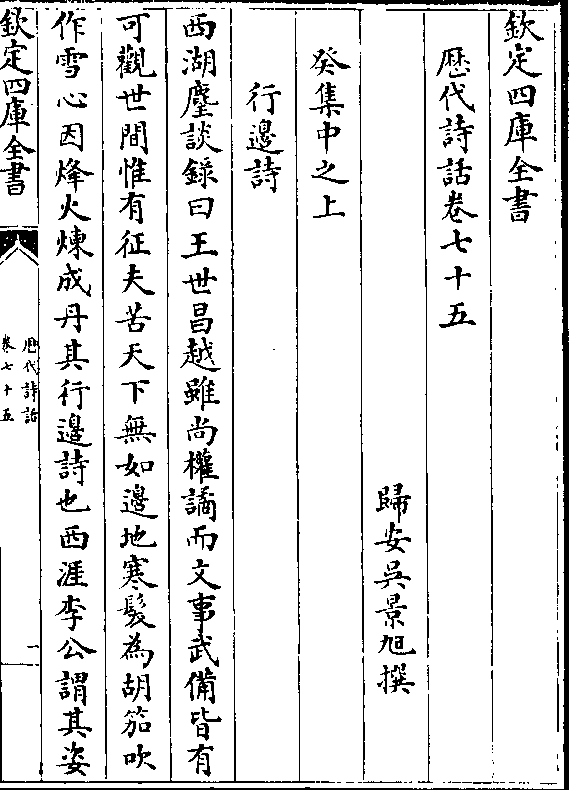 欽定四庫全書
歴代詩話卷七十五
歸安吳景旭撰
癸集中之上
行邊詩
西湖麈談錄曰王世昌越雖尚權譎而文事武備皆有
可觀世間惟有征夫苦天下無如邊地寒髮為胡笳吹
作雪心因烽火煉成丹其行邊詩也西涯李公謂其姿
欽定四庫全書
歴代詩話
卷七十五
一